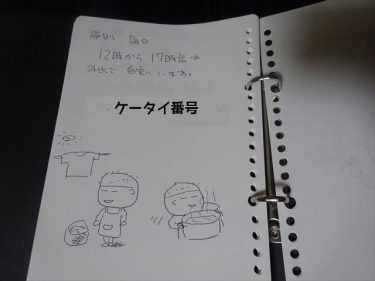 原則 毎日
12時から 17時迄は
外出で 自宅にいます。
ケータイ番号